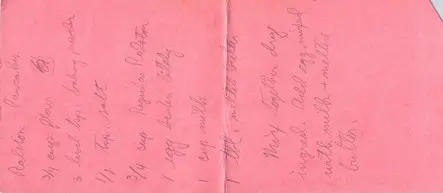 Ralston Pancakes
3/4 cup flour
3 level tsp. baking powder
1/2 tsp salt
3/4 cup Regular Ralston
1 egg beaten
1 cup milk
1 melted butter
Mix together dry
ingred. Add egg mixed
with milk & melted
butter.